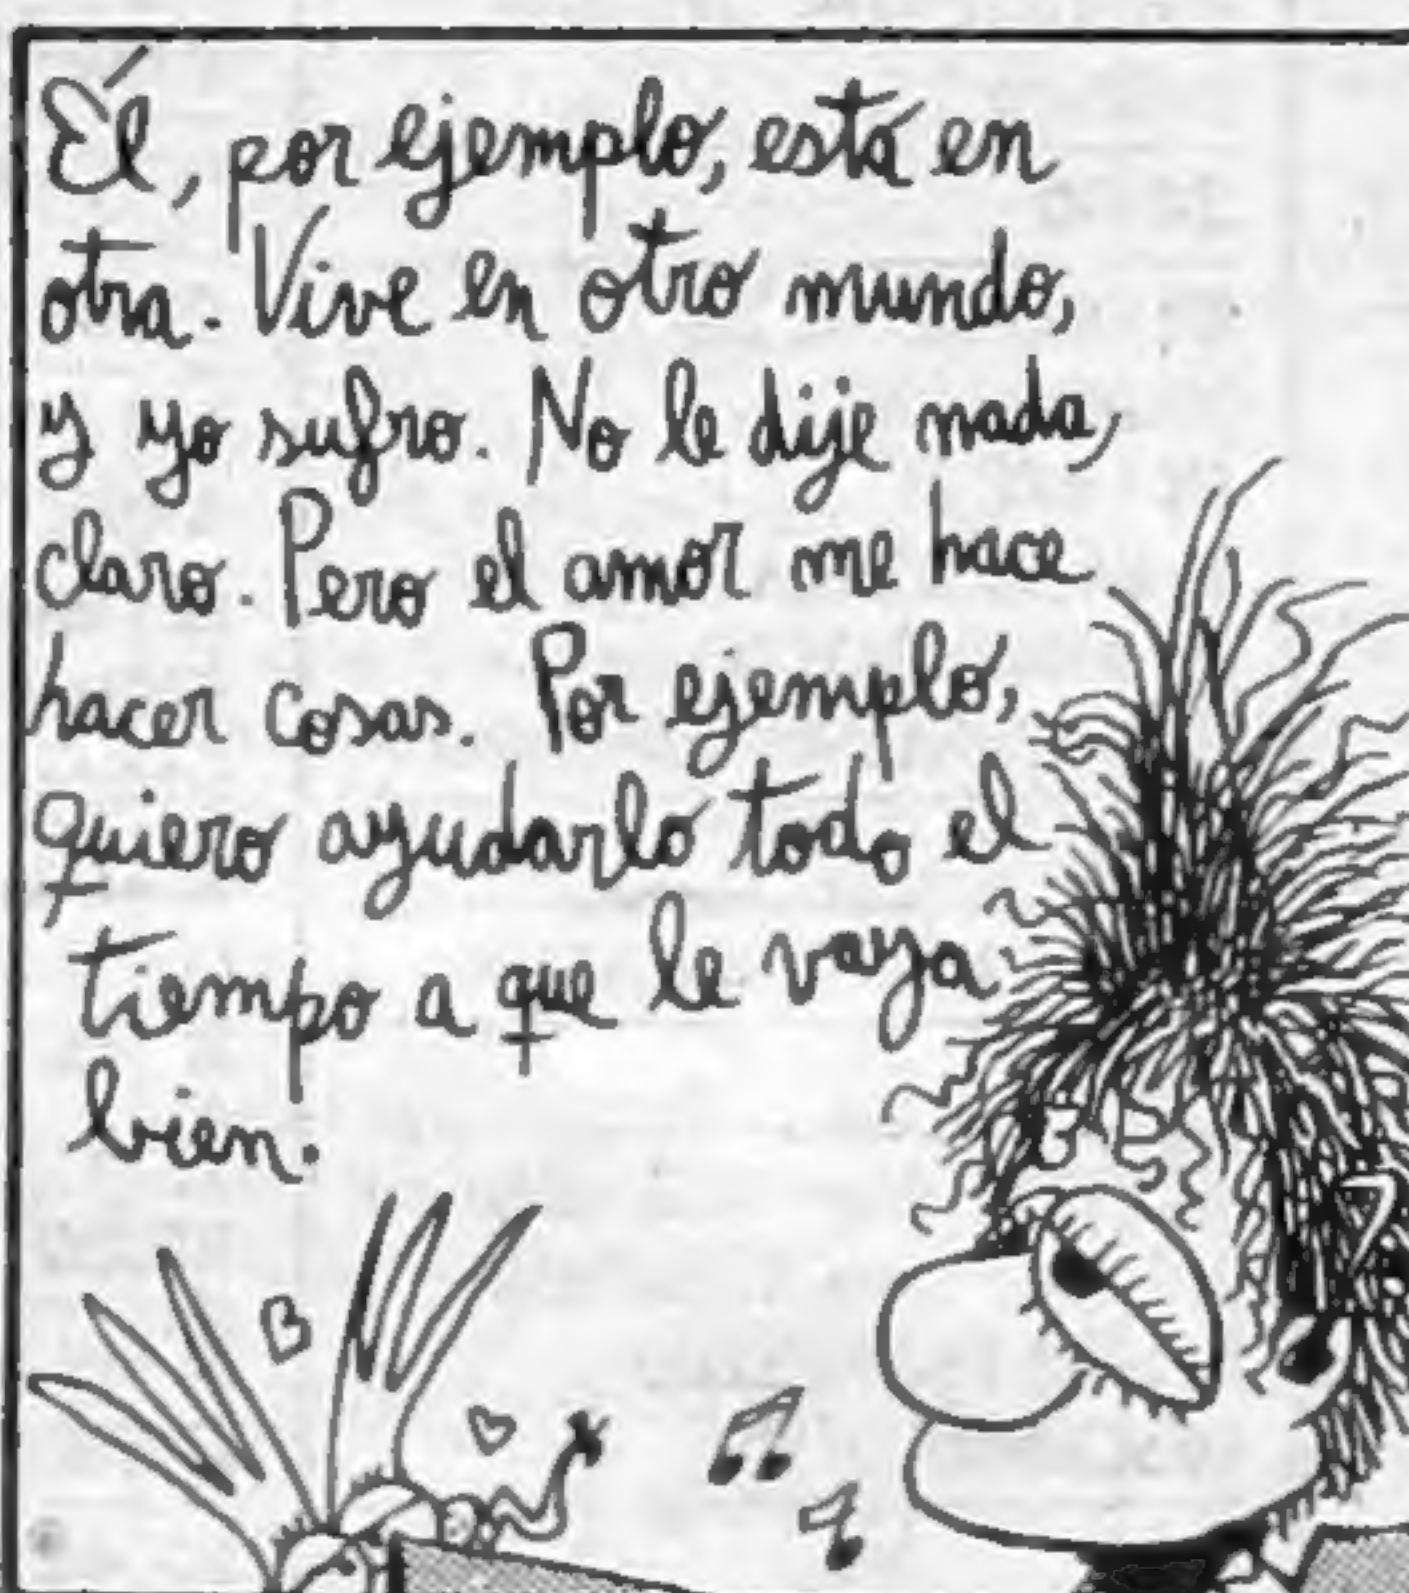 Él, por ejemplo, está en
otra. Vive en otro mundo,
y yo sufro. No le dije nada,
claro. Pero el amor me hace
hacer cosas. Por ejemplo,
quiero ayudarlo todo el
tiempo a que le vaya
bien.